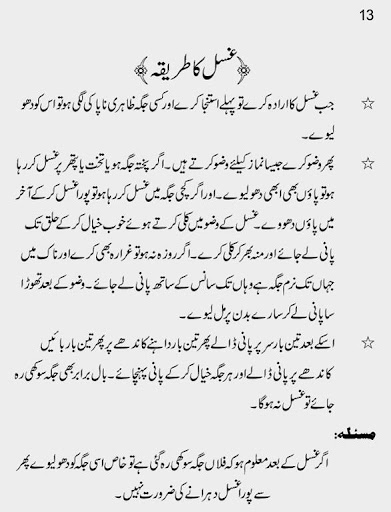 13
﴿ غسل کا طریقہ ﴾
☆ جب غسل کا ارادہ کرے تو پہلے استنجا کرے اور کسی جگہ ظاہری ناپاکی لگی ہو تو اس کو دھو
لیوے۔
☆ پھر وضو کرے جیسا نماز کیلئے وضو کرتے ہیں۔ اگر پختہ جگہ ہو یا تخت یا پتھر پر غسل کر رہا
ہو تو پاؤں بھی ابھی دھو لیوے۔ اور اگر کچی جگہ میں غسل کر رہا ہو تو پورا غسل کر کے آخر
میں پاؤں دھووے۔ غسل کے وضو میں کلی کرتے ہوئے خوب خیال کر کے حلق تک
پانی لے جائے اور منہ بھر کر کلی کرے۔ اگر روزہ نہ ہو تو غرارہ بھی کرے اور ناک میں
جہاں تک نرم جگہ ہے وہاں تک سانس کے ساتھ پانی لے جائے۔ وضو کے بعد تھوڑا
سا پانی لے کر سارے بدن پر مل لیوے۔
☆ اسکے بعد تین بار سر پر پانی ڈالے پھر تین بار داہنے کاندھے پر پھر تین بار بائیں
کاندھے پر پانی ڈالے اور ہر جگہ خیال کر کے پانی پہنچائے۔ بال برابر بھی جگہ سوکھی رہ
جائے تو غسل نہ ہوگا۔
مسئلہ:
اگر غسل کے بعد معلوم ہو کہ فلاں جگہ سوکھی رہ گئی ہے تو خاص اسی جگہ کو دھو لیوے پھر
سے پورا غسل دہرانے کی ضرورت نہیں۔